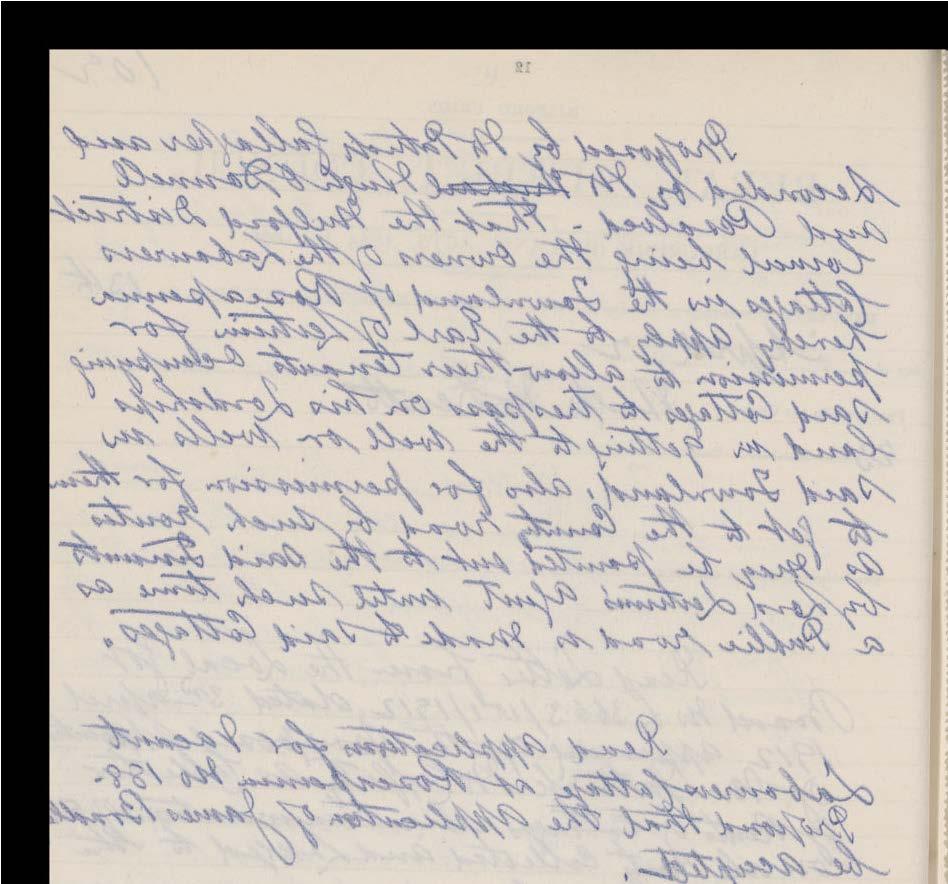 12
Proposed by Mr Patrick Gallagher and
Seconded by Mr Hugh O'Donnell
and Resolved - That the Milford District
Council being the Owners of the Labourers
Cottages in the Townland of Rosapenna
hereby apply to the Earl of Leitrim for
permission to allow their tenants occupying
said Cottages to trespass on his Lordships
land in getting to the well or wells in
said Townland, also for permission for them
to get to the County road by such routes
as may be pointed out to the said Tenants
by Lord Leitrims Agent until such time as
a Public road is made to said Cottages.
Read Application for Vacant
Labourers Cottage at Rosapenna No 138.
Proposed that the Application of James
be accepted.